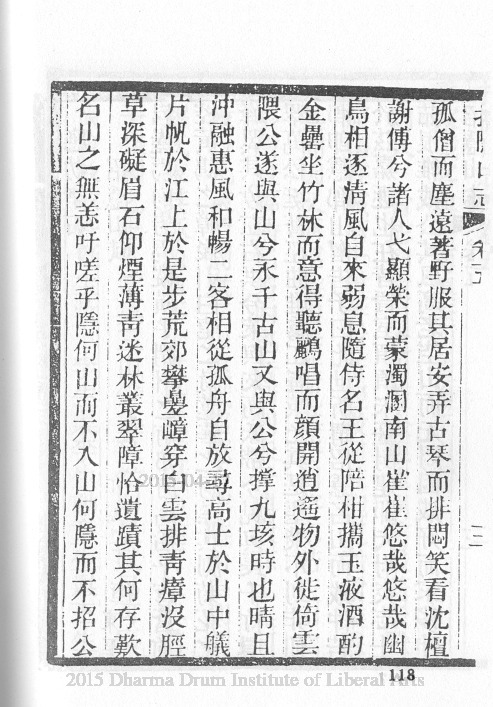 招隱山志　卷十五　二
孤僧而塵遠著野服其居安弄古琴而排悶笑看沈檀
謝傅兮諸人弋顯榮而蒙濁溷南山崔崔悠哉悠哉幽
鳥相逐清風自來弱息隨侍名王從陪柑攜玉液酒酌
金罍坐竹林而意得聽鸝唱而顔開逍遥物外徙倚雲
隈公遂與山兮永千古山又與公兮撑九垓時也晴且
沖融惠風和暢二客相從孤舟自放尋高士於山中艤
片帆於江上於是步荒郊攀㬪嶂穿白雲排青瘴沒脛
草深礙眉石仰煙薄靑迷林叢翠障恰遺蹟其何存歎
名山之無恙吁嗟乎隱何山而不入山何隱而不招公
118
2015-04-
2015 Dharma Drum Institute of Liberal Arts